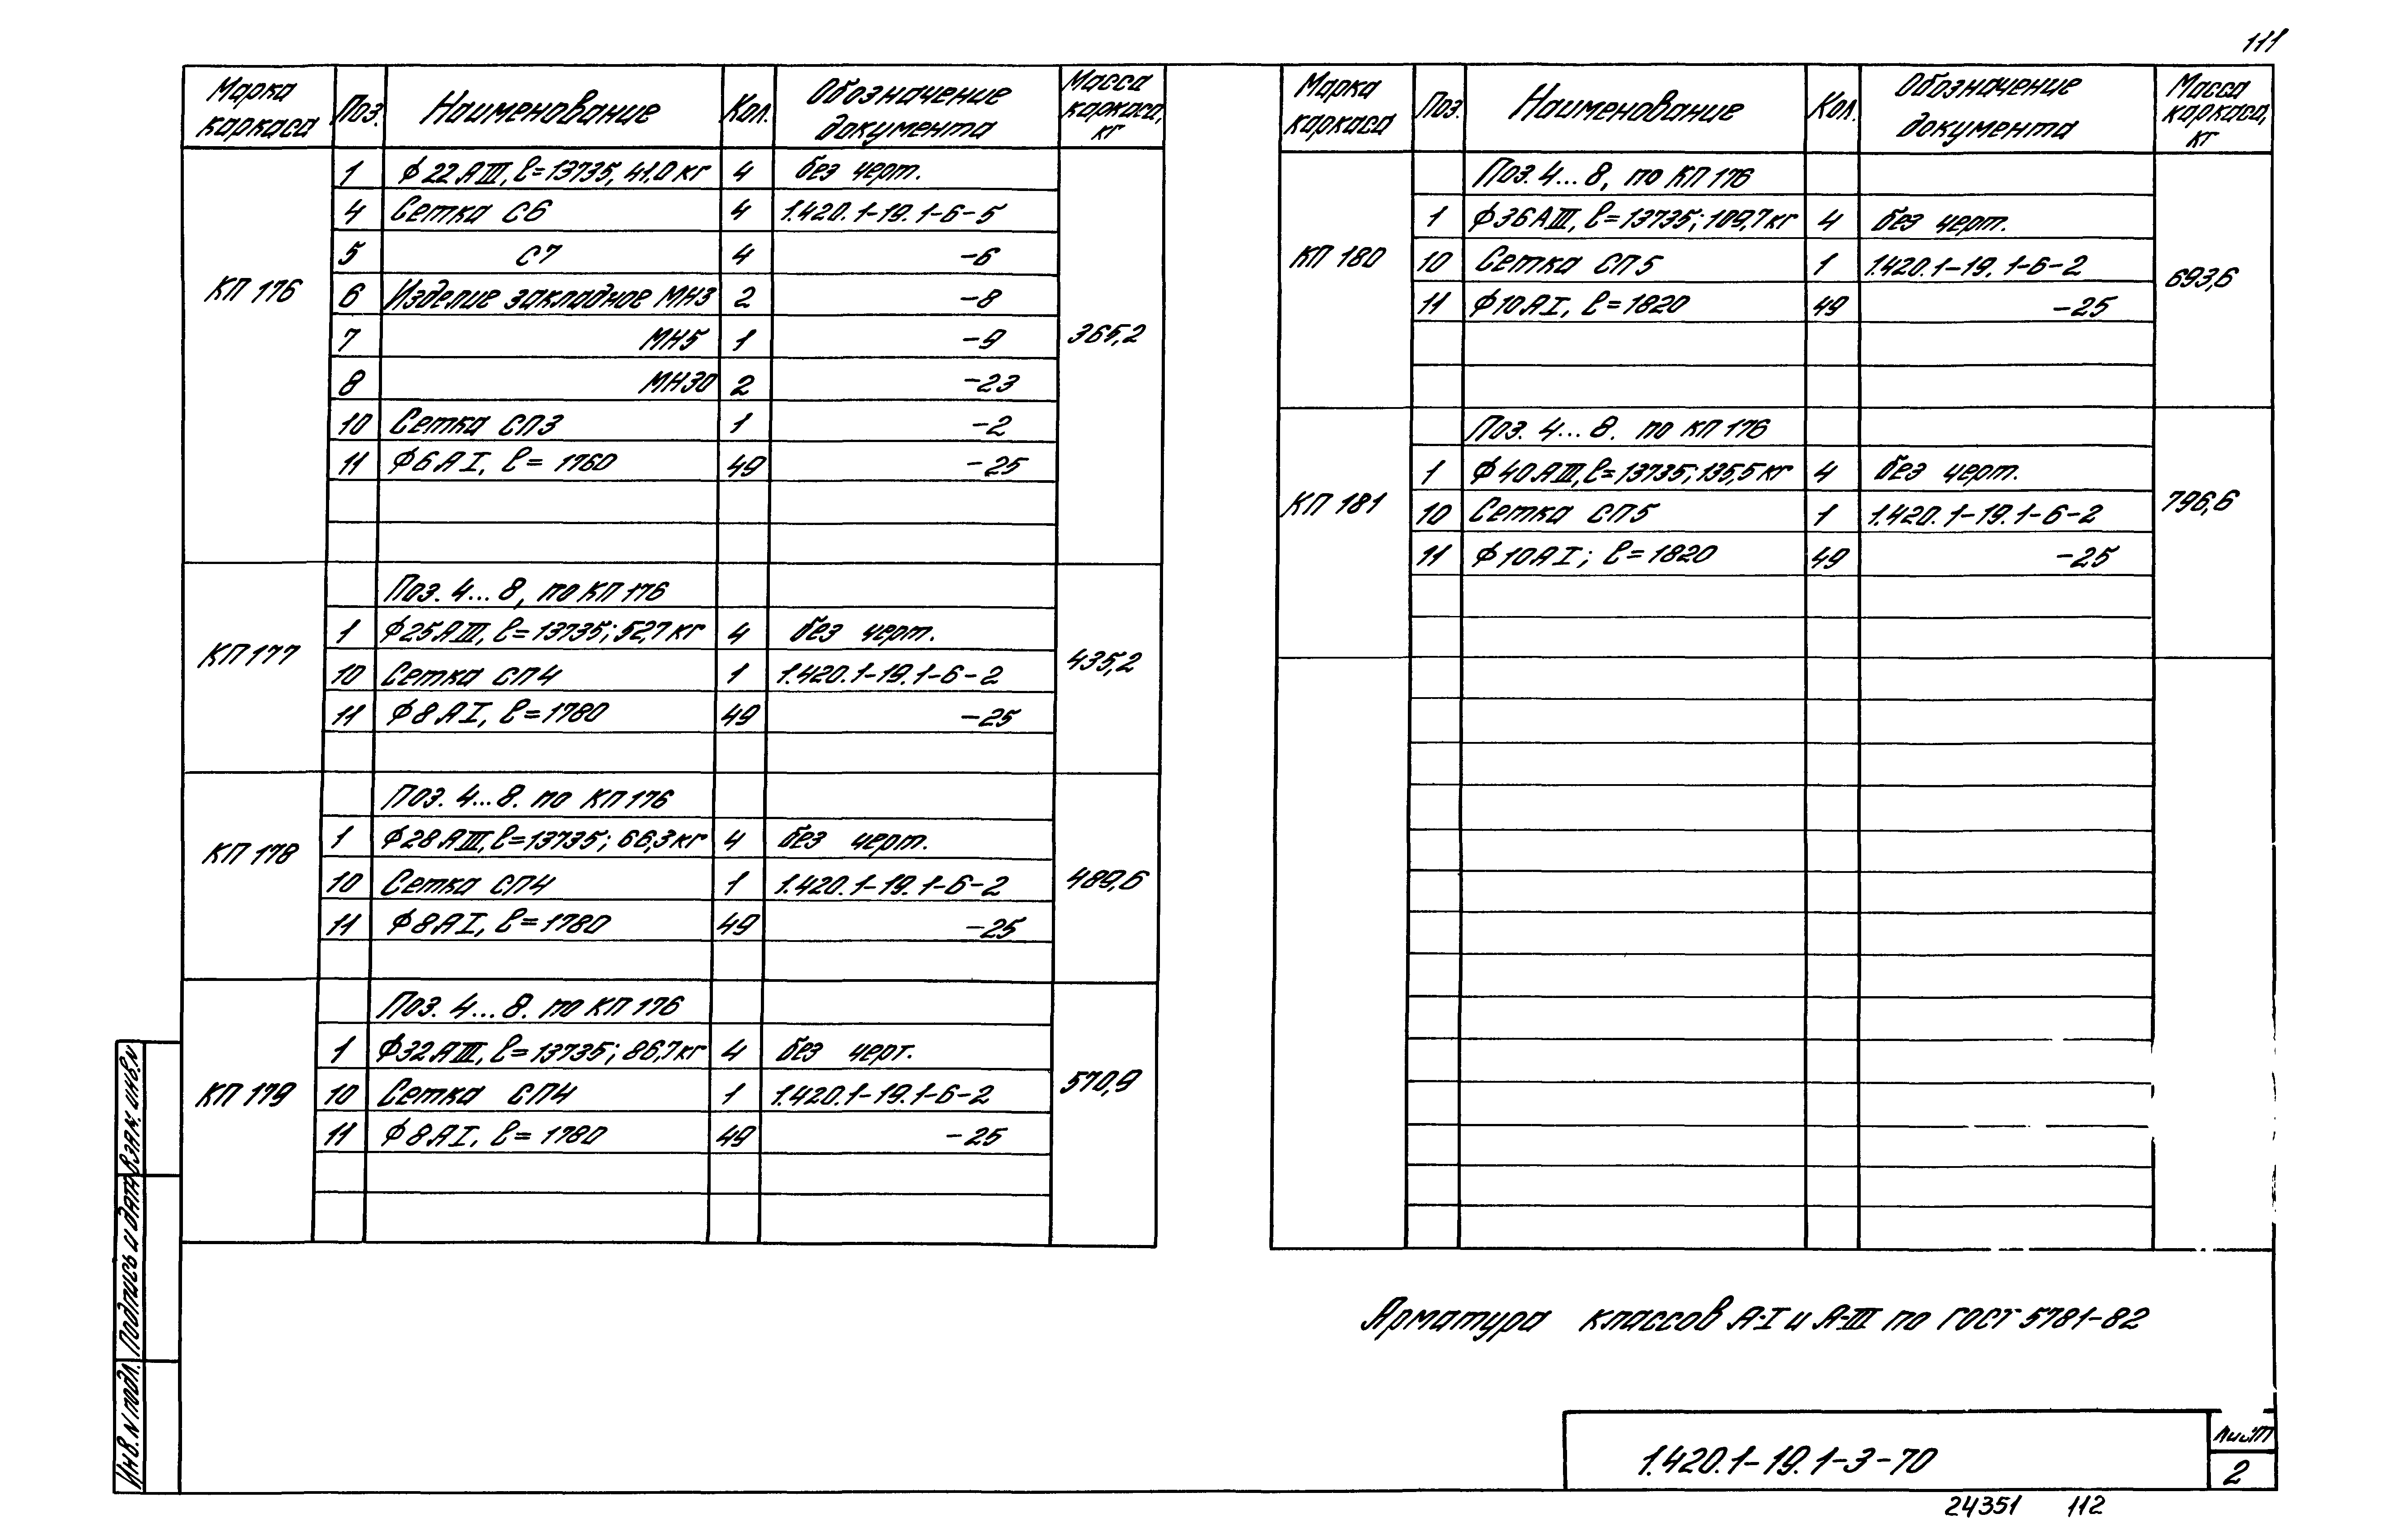 111
Марка каркаса | Поз. | Наименование | Кол. | Обозначение документа | Масса каркаса, кг
КП 176 | 1 | ϕ22АIII, ℓ=13735, 41,0 кг | 4 | без черт. | 365,2
4 | Сетка С6 | 4 | 1.420.1-19.1-6-5
5 | С7 | 4 | -6
6 | Изделие закладное МН3 | 2 | -8
7 | МН5 | 1 | -9
8 | МН30 | 2 | -23
10 | Сетка СП3 | 1 | -2
11 | ϕ6АI, ℓ=1760 | 49 | -25
КП 177 | Поз. 4...8, по КП 176 | 435,2
1 | ϕ25АIII, ℓ=13735; 52,7 кг | 4 | без черт.
10 | Сетка СП4 | 1 | 1.420.1-19.1-6-2
11 | ϕ8АI, ℓ=1780 | 49 | -25
КП 178 | Поз. 4...8. по КП 176 | 489,6
1 | ϕ28АIII, ℓ=13735; 66,3 кг | 4 | без черт.
10 | Сетка СП4 | 1 | 1.420.1-19.1-6-2
11 | ϕ8АI, ℓ=1780 | 49 | -25
КП 179 | Поз. 4...8. по КП 176 | 570,9
1 | ϕ32АIII, ℓ=13735; 86,7 кг | 4 | без черт.
10 | Сетка СП4 | 1 | 1.420.1-19.1-6-2
11 | ϕ8АI, ℓ=1780 | 49 | -25
Марка каркаса | Поз. | Наименование | Кол. | Обозначение документа | Масса каркаса, кг
КП 180 | Поз. 4...8, по КП 176 | 693,6
1 | ϕ36АIII, ℓ=13735; 109,7 кг | 4 | без черт.
10 | Сетка СП5 | 1 | 1.420.1-19.1-6-2
11 | ϕ10АI, ℓ=1820 | 49 | -25
КП 181 | Поз. 4...8. по КП 176 | 796,6
1 | ϕ40АIII, ℓ=13735; 135,5 кг | 4 | без черт.
10 | Сетка СП5 | 1 | 1.420.1-19.1-6-2
11 | ϕ10АI; ℓ=1820 | 49 | -25
Арматура классов А-I и А-III по ГОСТ 5781-82
Инв. N подл. Подпись и дата Взам. инв. N
1.420.1-19.1-3-70
Лист
2
24351 112